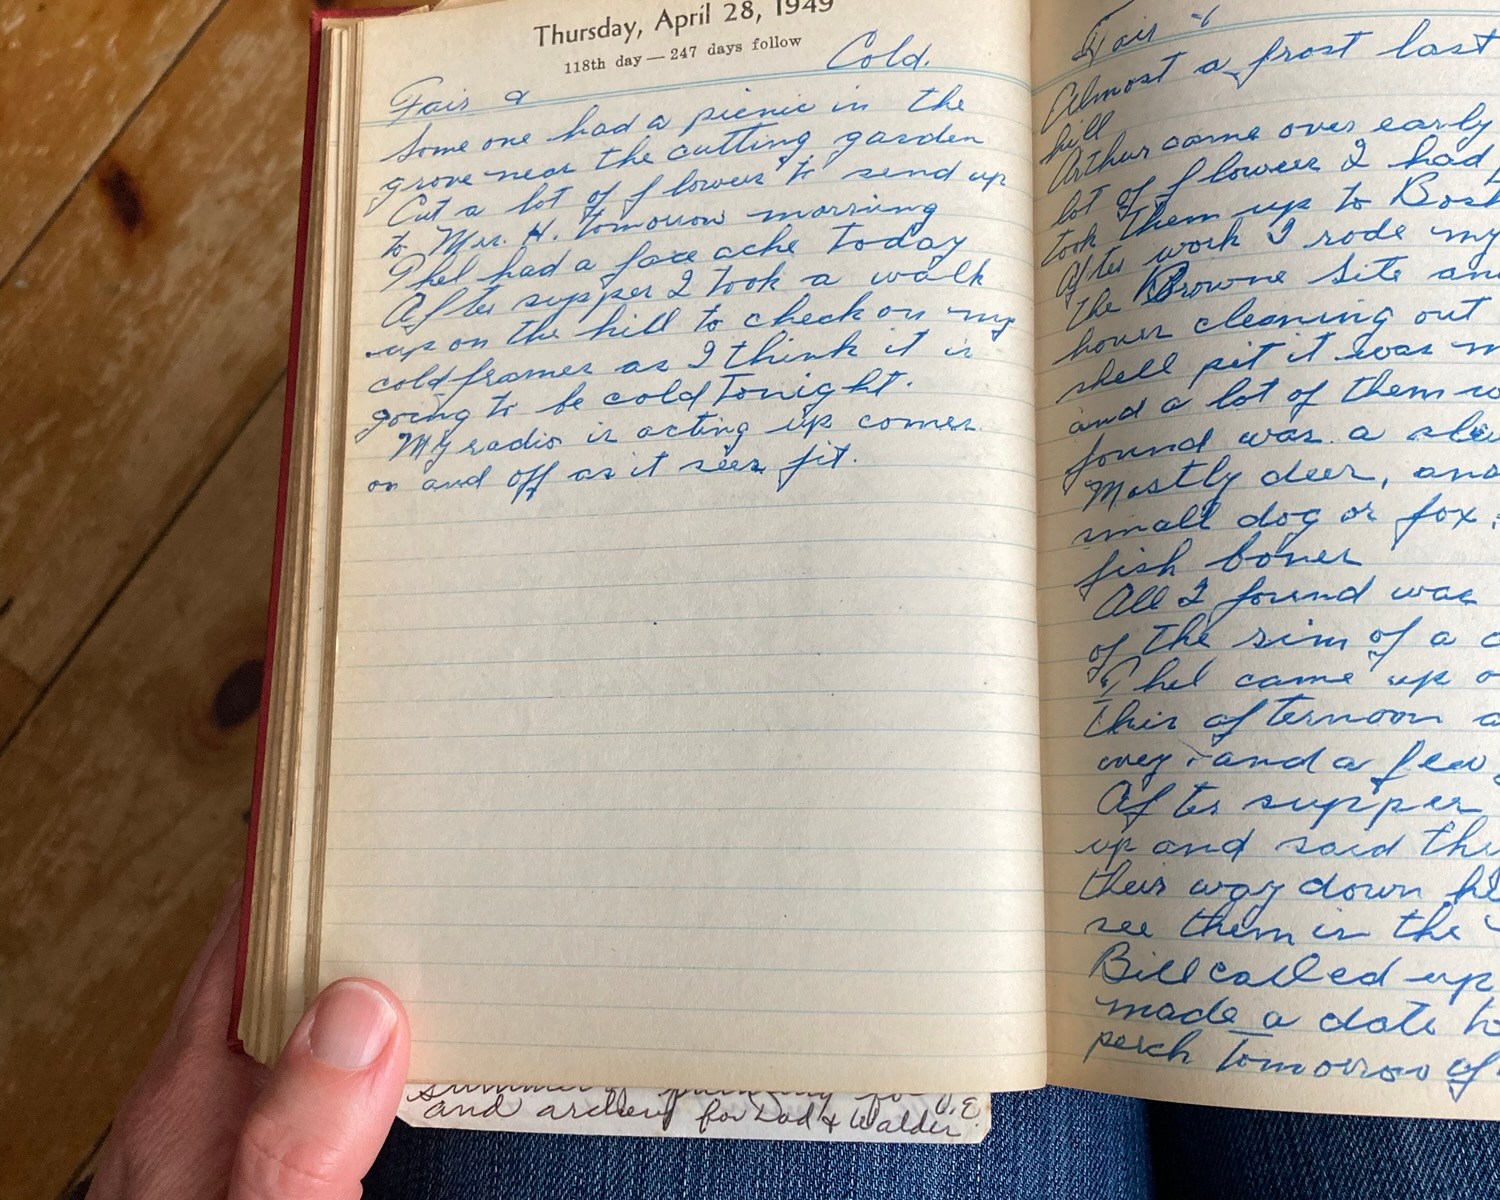 Thursday, April 28, 1949
118th day — 247 days follow
Cold.
Fair &
Some one had a picnic in the
grove near the cutting garden
Cut a lot of flowers to send up
to Mrs. H. tomorrow morning
Phel had a face ache today
After supper I took a walk
up on the hill to check on my
cold frames as I think it is
going to be cold tonight.
My radio is acting up comes
on and off as it sees fit.
and archery for Dad & Walder
Fair
Almost a frost last
hill
Arthur came over early
lot of flowers I had
took them up to Bost
After work I rode my
the Browne Site and
hour cleaning out
shell pit it was m
and a lot of them w
found was a
Mostly deer, and
small dog or fox
fish bones
All I found was
of the rim of a
Phel came up
this afternoon a
and a few
After supper
up and said
their way down
see them in the
Bill called up
made a date to
perch tomorrow